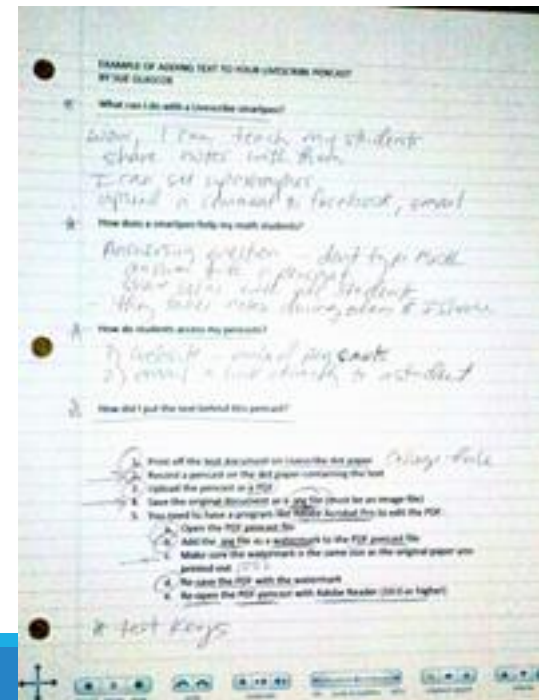 EXAMPLE OF ADDING TEXT TO YOUR LIVESCRIBE PENCAST
BY SUE GLASCOE
What can I do with a Livescribe smartpen?
wow, I can teach my students
share notes with them
I can
upload a comment to facebook, email
How does a smartpen help my math students?
Answering question - don't type much
answer with a pencast
with students
they take notes during
How do students access my pencasts?
1) website - pencasts
2) email a link directly to a student
How did I put the text behind this pencast?
1. Print off the text document on Livescribe dot paper College Rule
2. Record a pencast on the dot paper containing the text
3. Upload the pencast as a PDF
4. Save the original document as a .jpg file (must be an image file)
5. You need to have a program like Adobe Acrobat Pro to edit the PDF
a. Open the PDF pencast file
b. Add the .jpg file as a watermark to the PDF pencast file
c. Make sure the watermark is the same size as the original paper you
printed out
d. Re-save the PDF with the watermark
e. Re-open the PDF pencast with Adobe Reader (10.0 or higher)
* test Keys